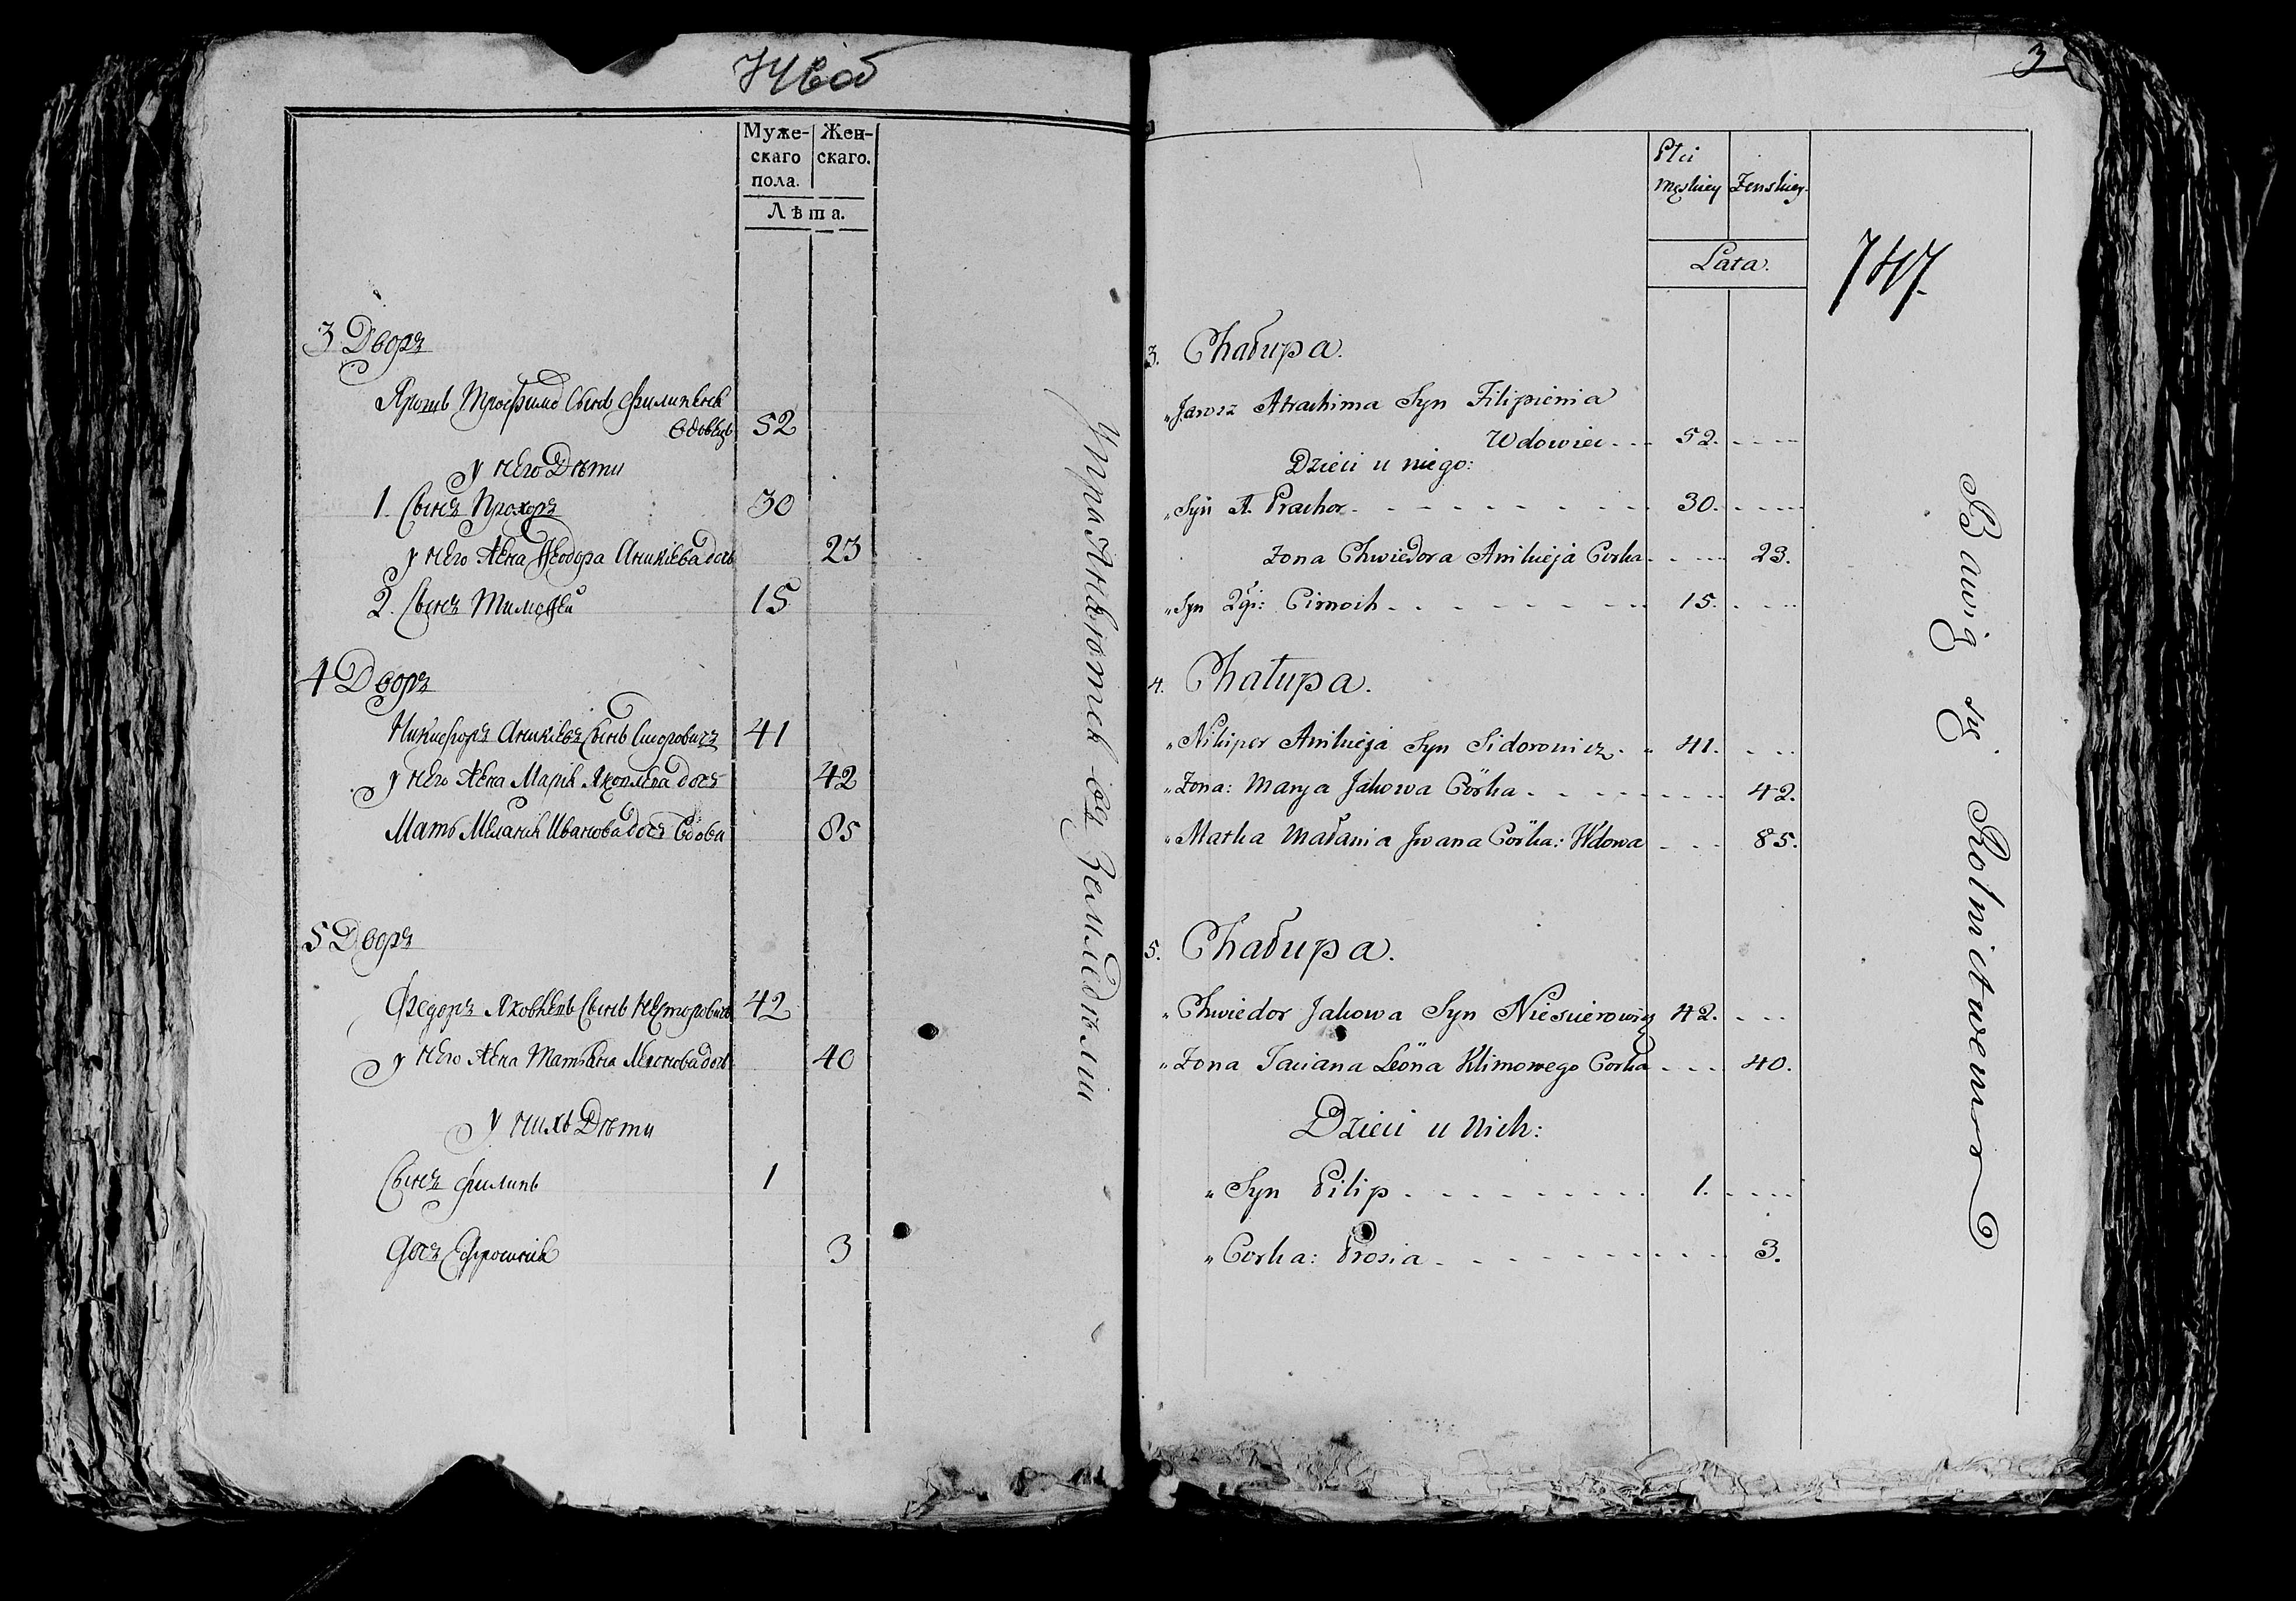 746об
Муже-
скаго
пола.
Жен-
скаго.
Лѣта.
3 Дворъ
Ярошъ Трофимо Сынъ Филипеня
вдовецъ 52
у него Дѣти
1. Сынъ Прохоръ 30
у него Жена Ѳеодора Аникіева дочь 23
2. Сынъ Тимоѳей 15
4 Дворъ
Никифоръ Аникіевъ Сынъ Сидоровичъ 41
у него Жена Марія Яковлева дочь 42
Мать Меланія Иванова дочь Вдова 85
5 Дворъ
Федоръ Яковлевъ Сынъ Несторовичъ 42
у него Жена Татьяна Леонова дочь 40
у нихъ Дѣти
Сынъ Филипъ 1
дочь Ефросинія 3
Упражняются Земледѣліи
3
Płci
męskiey
Żenskiey
Lata.
747.
3. Chałupa.
"Jarosz Atrachima Syn Filipienia
Wdowiec - - - 52. - - - -
Dzieci u niego:
"Syn A. Prachor - - - - - - - - 30. - - - -
Zona Chwiedora Anikieja Corka - - - - 23.
"Syn 2gi: Cimoch - - - - - - - - 15. - - - -
4. Chałupa.
"Nikiper Anikieja Syn Sidorowicz - " 41. - - -
"Zona: Marya Jakowa Córka - - - - - - - - 42.
"Matka Małania Jwana Córka: Wdowa - - - 85.
5. Chałupa.
"Chwiedor Jakowa Syn Niescierowicz 42. - - -
"Zona Taciana Leona Klimowego Corka - - - 40.
Dzieci u nich:
"Syn Pilip - - - - - - - - - 1. - - - -
"Corka: Prosia - - - - - - - - - - 3.
Bawią się Rolnictwem